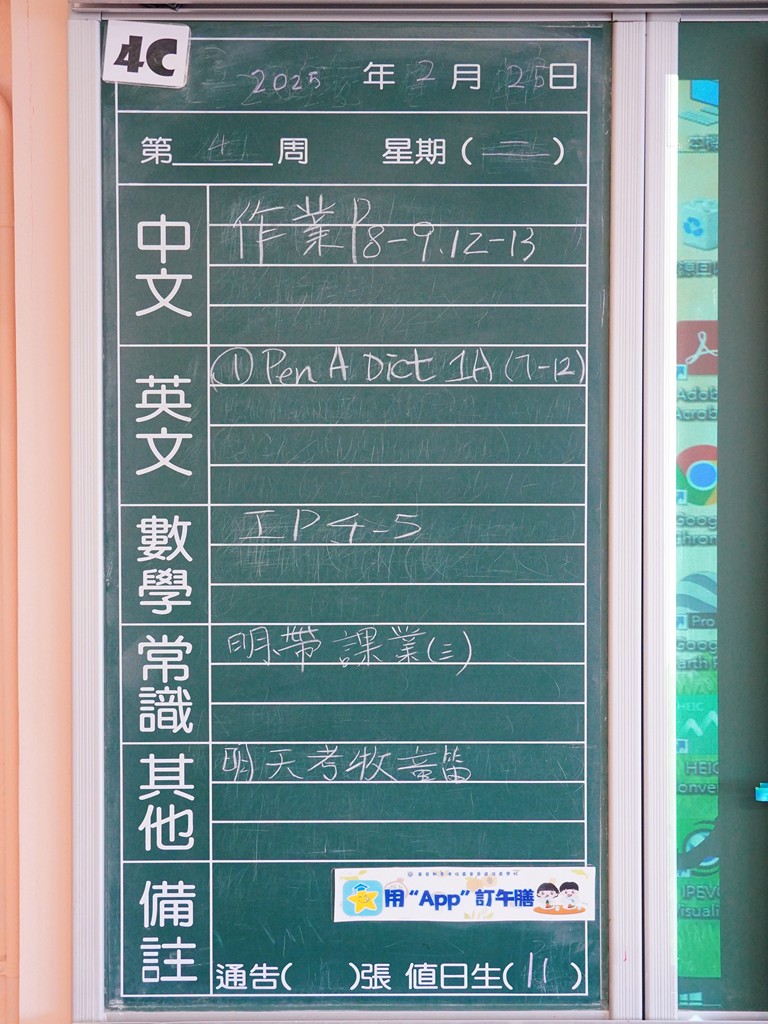 4C
2025 年 2 月 25 日
第 4 周 星期 ( 二 )
中文
作業P8-9.12-13
英文
① Pen A Dict 1A (7-12)
數學
工P4-5
常識
明帶課業(三)
其他
明天考牧童笛
備註
用“App”訂午膳
通告( )張 值日生( 11 )
Adob
Acrob
Goog
Chrom
Pro
Goog
Earth P
HEIC
HEIC
onve
IPEVO
Visuali